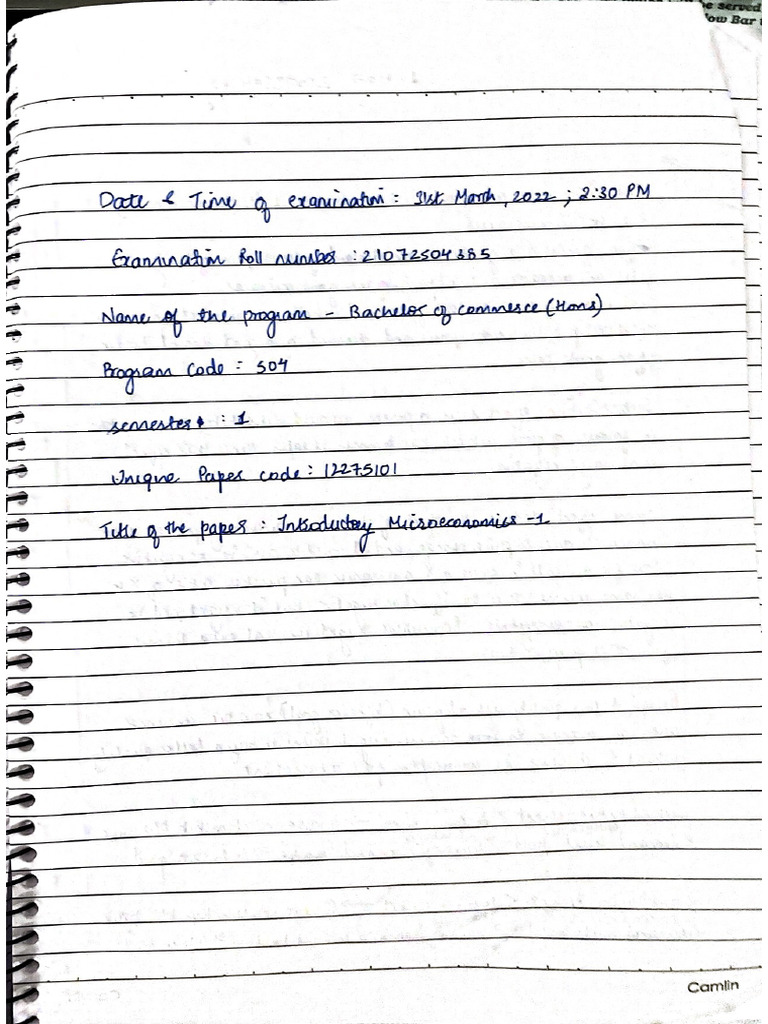 e served
ow Bar
Date & Time of examination : 31st March, 2022 ; 2:30 PM
Examination Roll number : 21072504385
Name of the program - Bachelor of commerce (Hons)
Program Code : 504
semester : 1
Unique Paper code : 12275101
Title of the paper : Introductory Microeconomics -1
Camlin